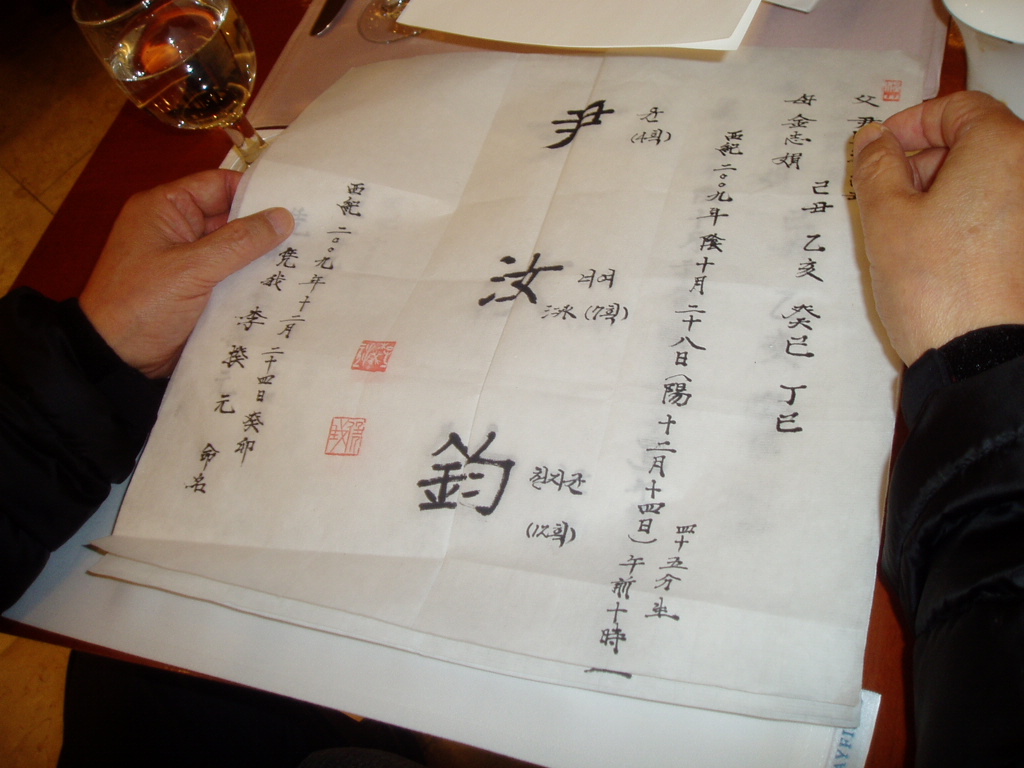 父尹
母金志娟
己丑 乙亥 癸巳 丁巳
西紀二〇〇九年陰十月二十八日(陽十二月十四日)午前十時
四十五分生
尹
윤
(4획)
汝
너여
(7획)
鈞
(12획)
西紀二〇〇九年十二月二十四日癸卯
我 李 元 命名